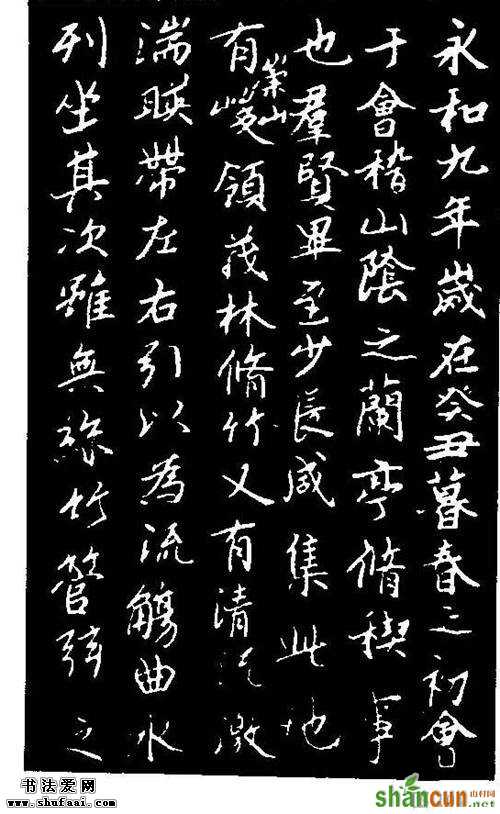 永和九年歲在癸丑暮春之初會
于會稽山陰之蘭亭脩稧事
也羣賢畢至少長咸集此地
有崇山峻領茂林脩竹又有清流激
湍暎帶左右引以為流觴曲水
列坐其次雖無絲竹管弦之
书法爱网
www.shufaai.com
shancun
山村网
.net